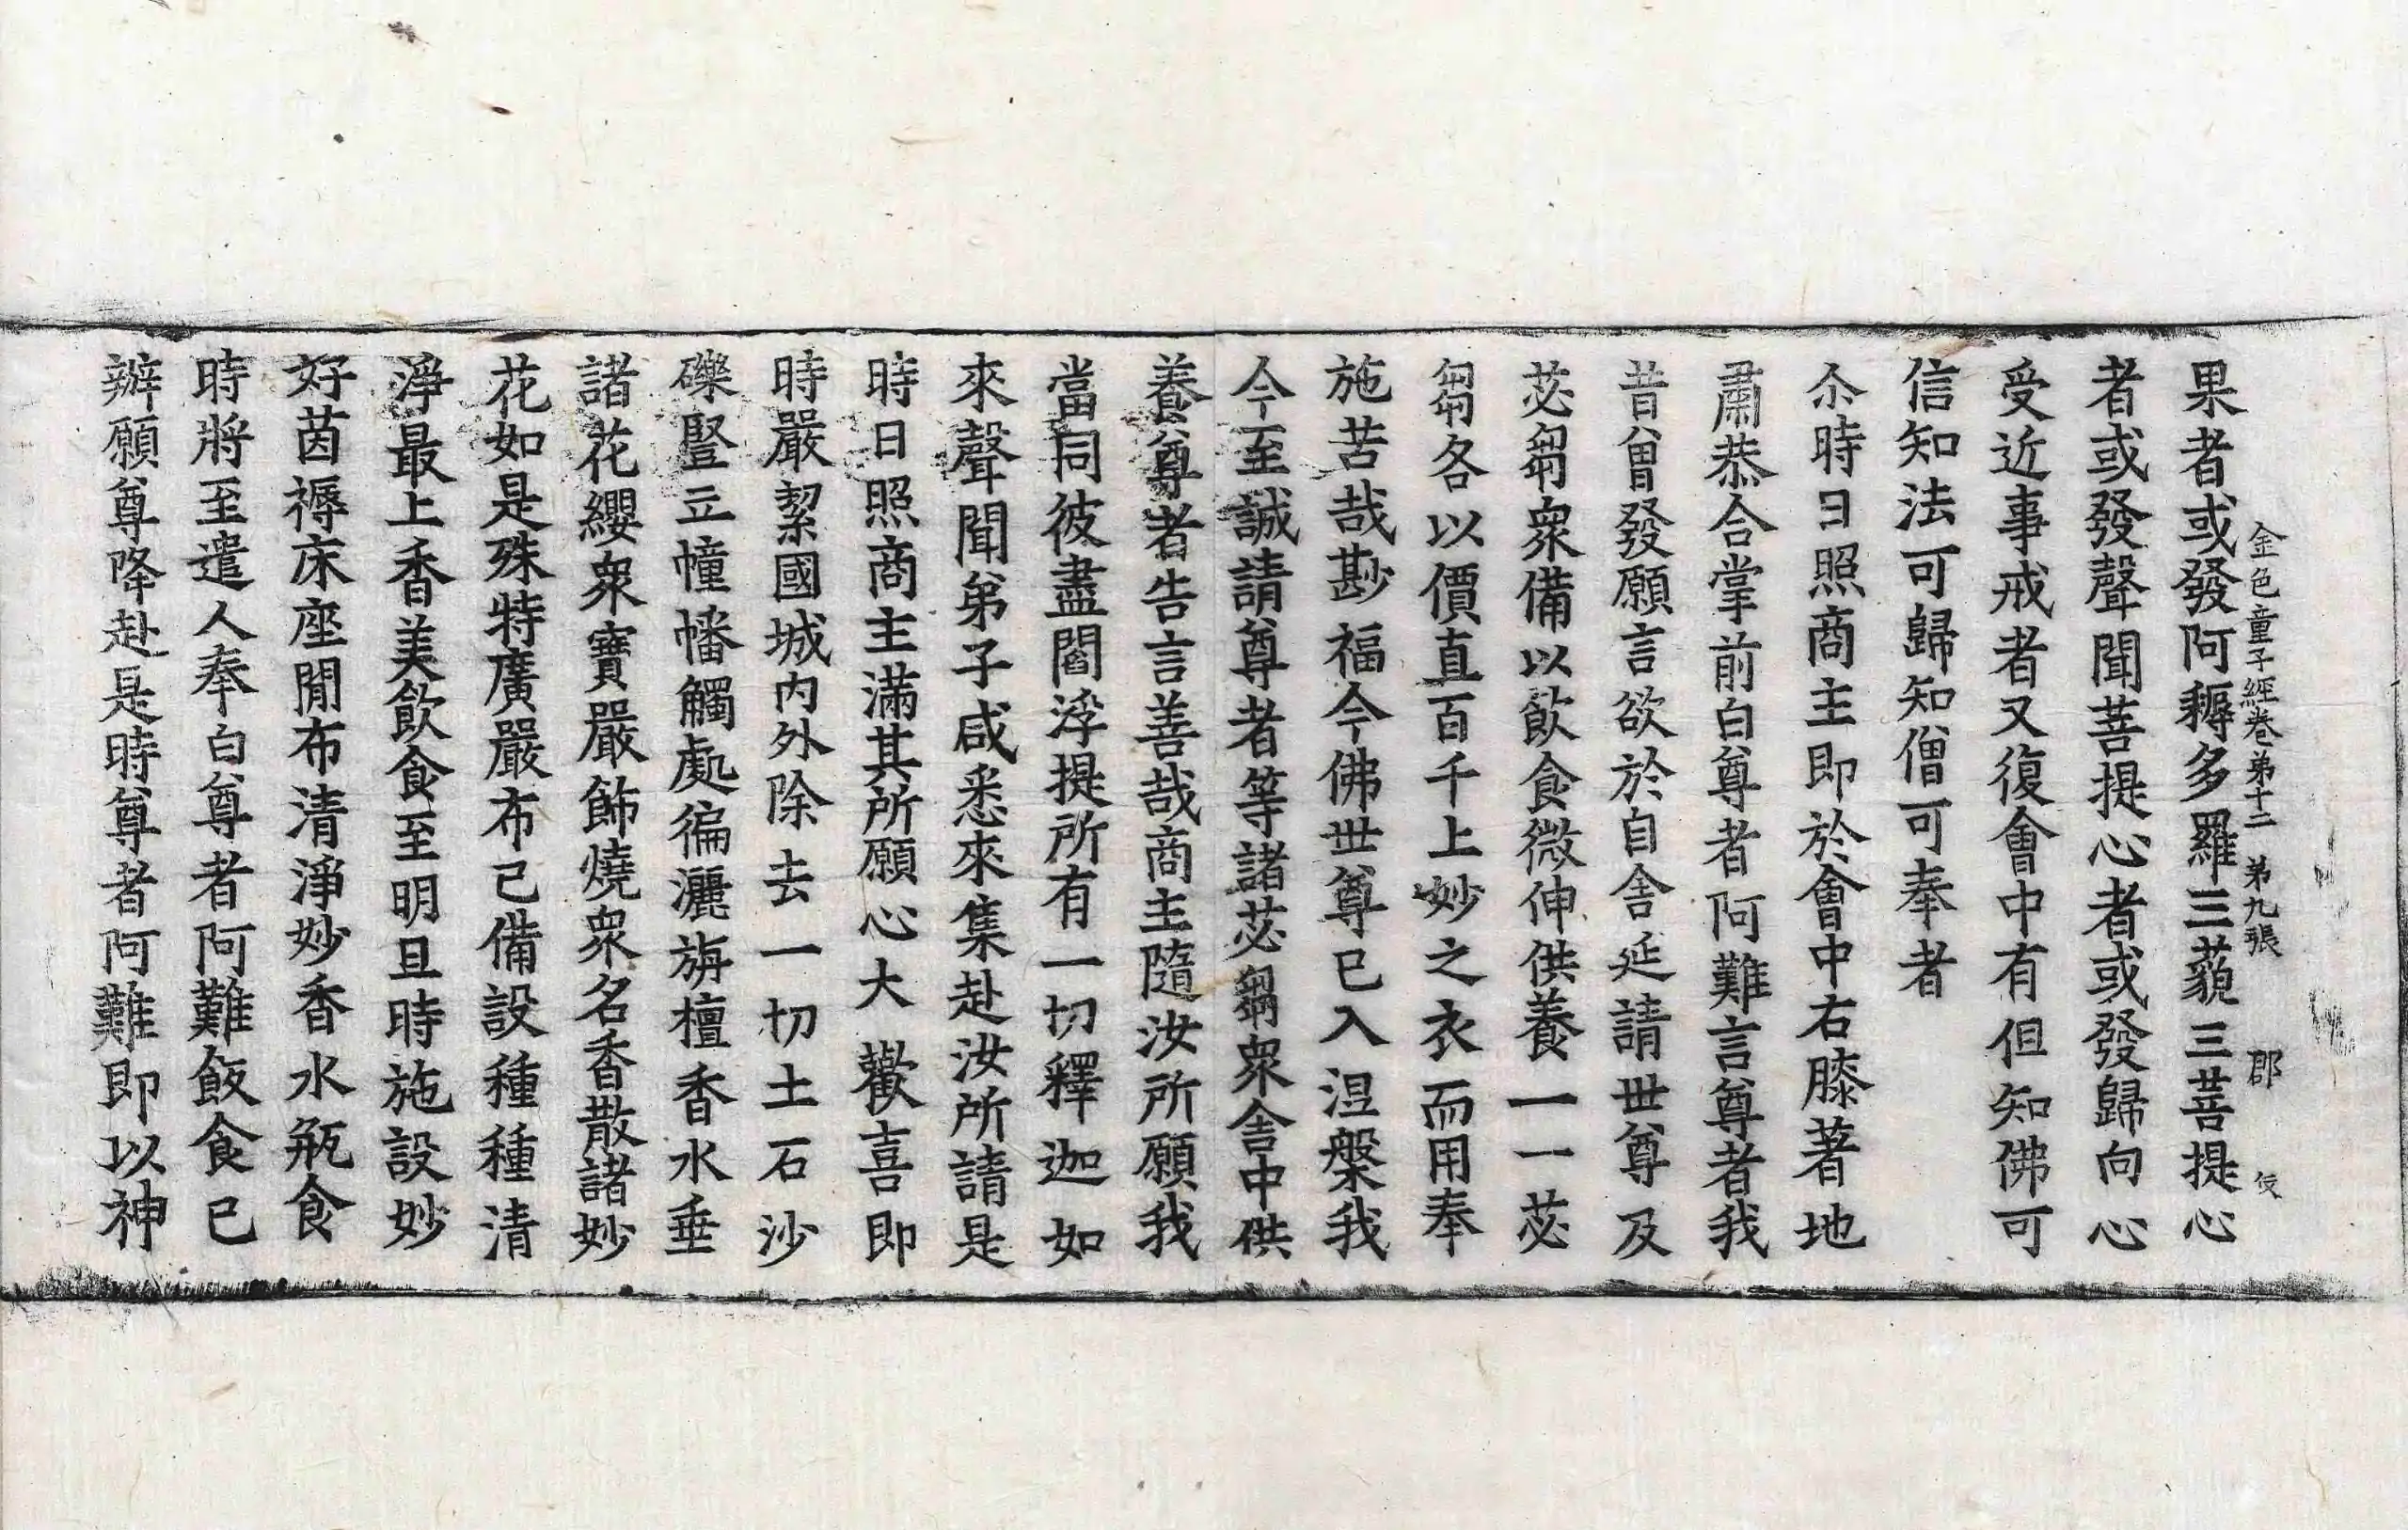 金色童子經卷第十二 第九張 郡 伎
果者或發阿耨多羅三藐三菩提心
者或發聲聞菩提心者或發歸向心
受近事戒者又復會中有但知佛可
信知法可歸知僧可奉者
尒時日照商主即於會中右膝著地
肅恭合掌前白尊者阿難言尊者我
昔曾發願言欲於自舍延請世尊及
苾芻衆備以飲食微伸供養一一苾
芻各以價直百千上妙之衣而用奉
施苦哉尠福今佛世尊已入涅槃我
今至誠請尊者等諸苾芻衆舍中供
養尊者告言善哉商主隨汝所願我
當同彼盡閻浮提所有一切釋迦如
來聲聞弟子咸悉來集赴汝所請是
時日照商主滿其所願心大歡喜即
時嚴絜國城內外除去一切土石沙
礫豎立幢幡觸處徧灑旃檀香水垂
諸花纓衆寶嚴飾燒衆名香散諸妙
花如是殊特廣嚴布已備設種種清
淨最上香美飲食至明旦時施設妙
好茵褥床座間布清淨妙香水甁食
時將至遣人奉白尊者阿難飯食已
辦願尊降赴是時尊者阿難即以神